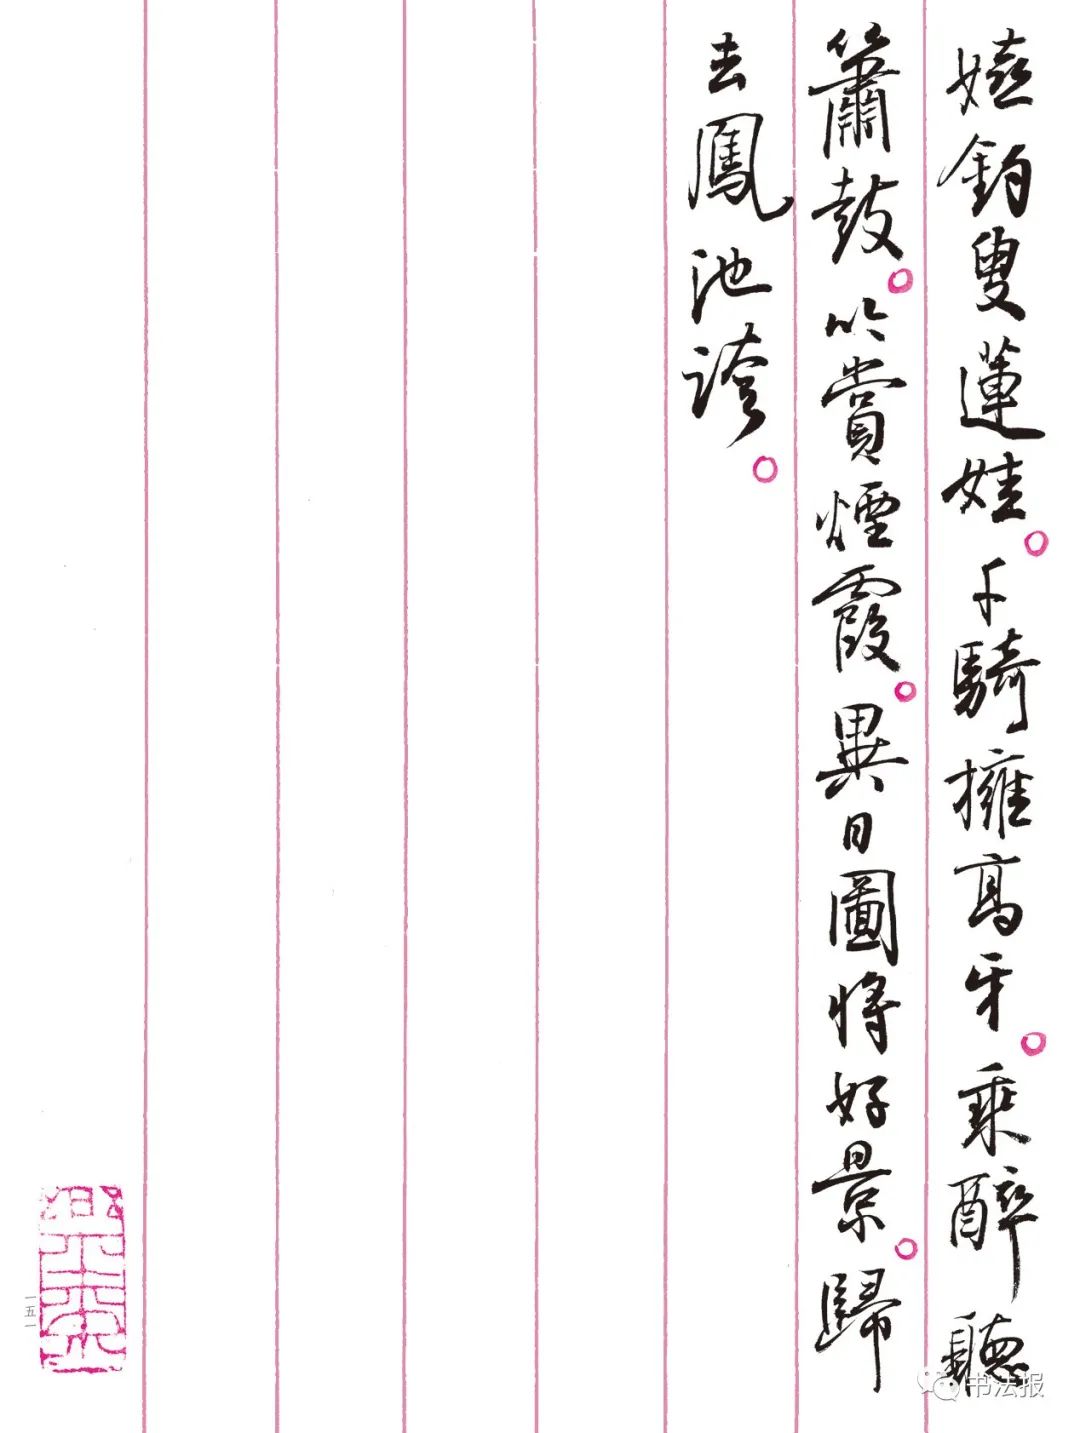 嬉釣叟蓮娃。千騎擁高牙。乘醉聽
簫鼓。吟賞煙霞。異日圖將好景。歸
去鳳池誇。
一五一
书法报